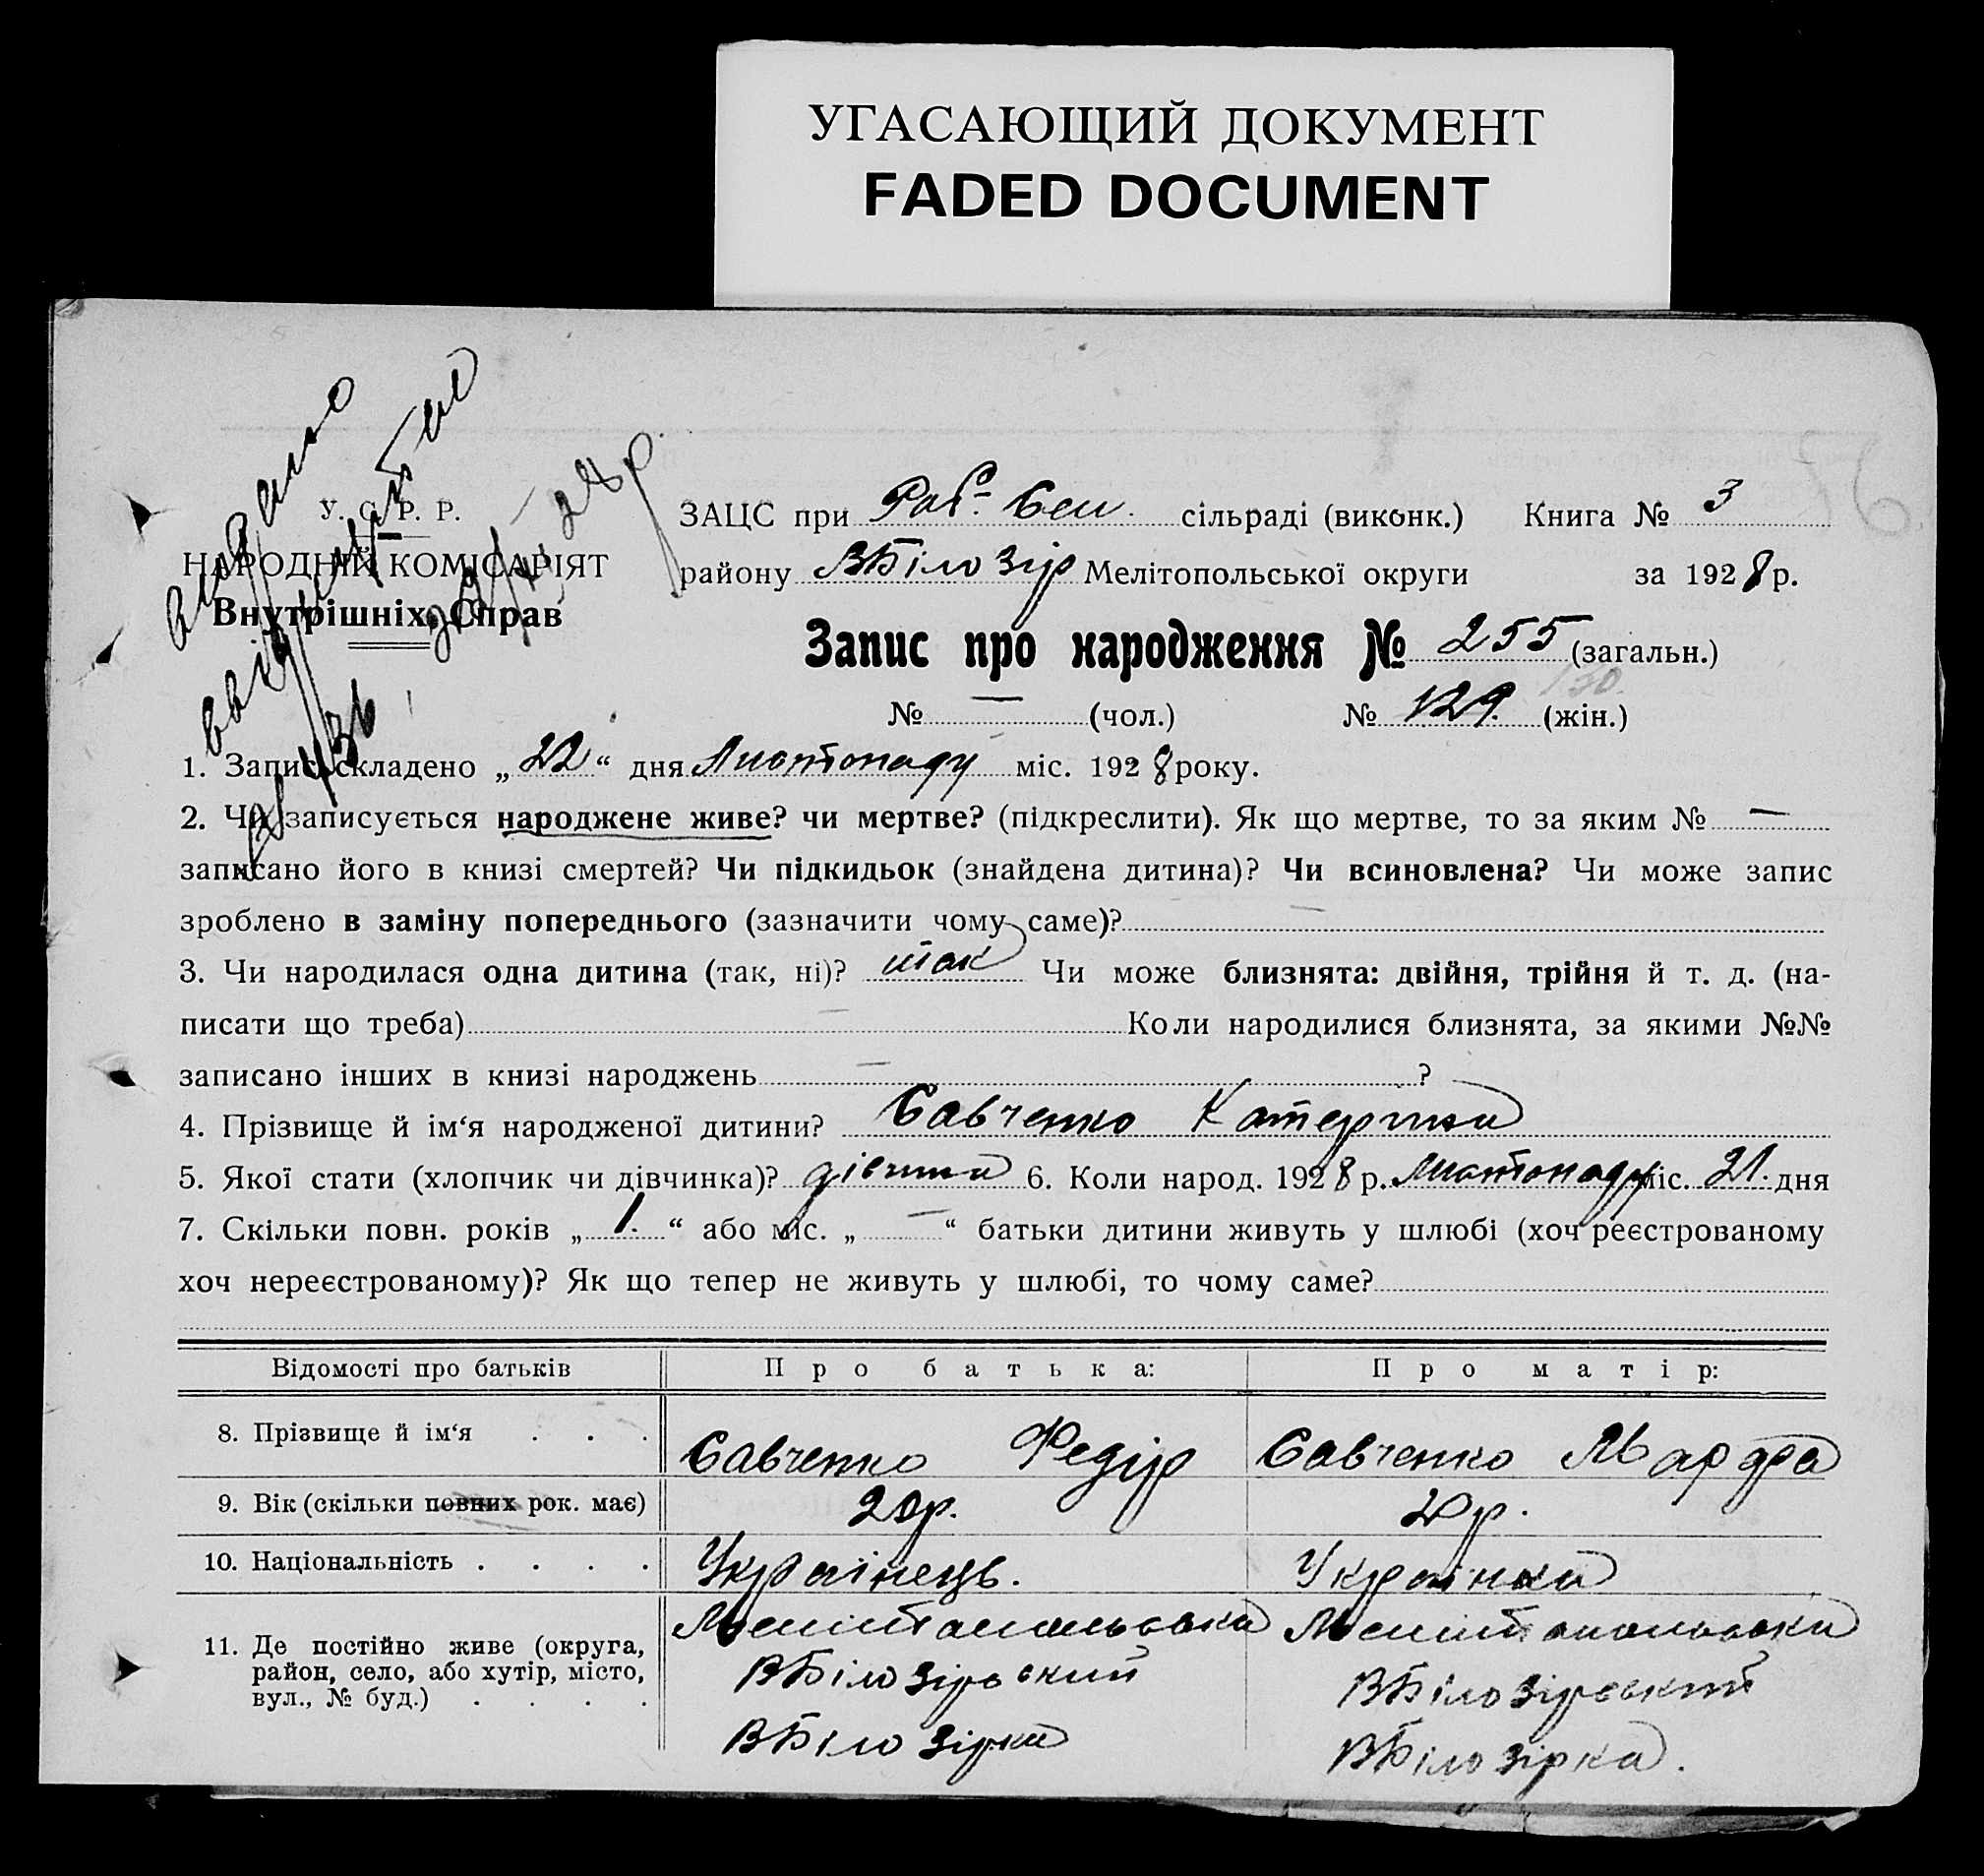 УГАСАЮЩИЙ ДОКУМЕНТ
FADED DOCUMENT
У. С. Р. Р.
НАРОДНІЙ КОМІСАРІЯТ
Внутрішніх Справ
видано
ЗАЦС при Раб- Сел. сільраді (виконк.) Книга № 3
району ВБілозір Мелітопольської округи за 1928 р.
Запис про народження № 255 (загальн.)
130.
№ — (чол.) № 129. (жін.)
1. Запис складено „22“ дня Листопаду міс. 1928 року.
2. Чи записується народжене живе? чи мертве? (підкреслити). Як що мертве, то за яким № —
записано його в книзі смертей? Чи підкидьок (знайдена дитина)? Чи всиновлена? Чи може запис
зроблено в заміну попереднього (зазначити чому саме)? —
3. Чи народилася одна дитина (так, ні)? так Чи може близнята: двійня, трійня й т. д. (на-
писати що треба) — Коли народилися близнята, за якими №№
записано інших в книзі народжень — ?
4. Прізвище й ім‘я народженої дитини? Савченко Катерина
5. Якої стати (хлопчик чи дівчинка)? дівчина 6. Коли народ. 1928 р. Листопаду міс. 21. дня
7. Скільки повн. років „1.“ або міс. „—“ батьки дитини живуть у шлюбі (хоч реєстрованому
хоч нереєстрованому)? Як що тепер не живуть у шлюбі, то чому саме?
Відомості про батьків Про батька: Про матір:
8. Прізвище й ім‘я . . . Савченко Федір Савченко Марфа
9. Вік (скільки повних рок. має) 20р. 20р.
10. Національність . . . . Українець. Українка
11. Де постійно живе (округа, район, село, або хутір, місто, вул., № буд.) . . . .
Мелітопольська Мелітопольська
ВБілозірський ВБілозірський
ВБілозірка ВБілозірка.